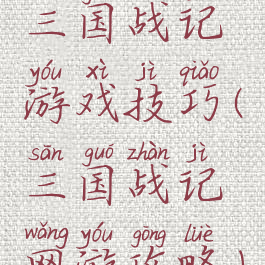 三国战记
yóu xì jì qiǎo
游戏技巧(
sān guó zhàn jì
三国战记
wǎng yóu gōng lüè
网游攻略)